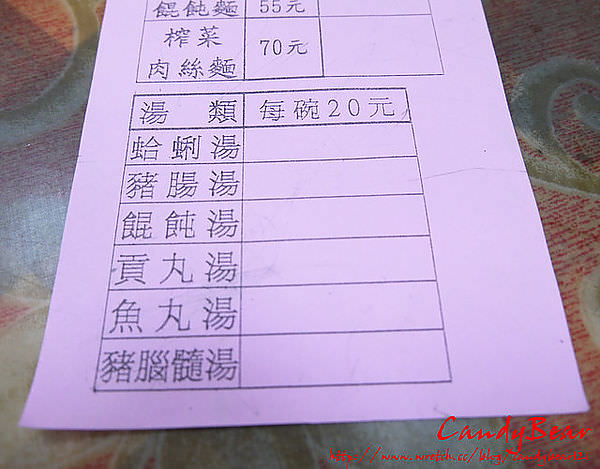 餛飩麵 55元
榨菜
肉絲麵 70元
湯類 每碗20元
蛤蜊湯
豬腸湯
餛飩湯
貢丸湯
魚丸湯
豬腦髓湯
CandyBear